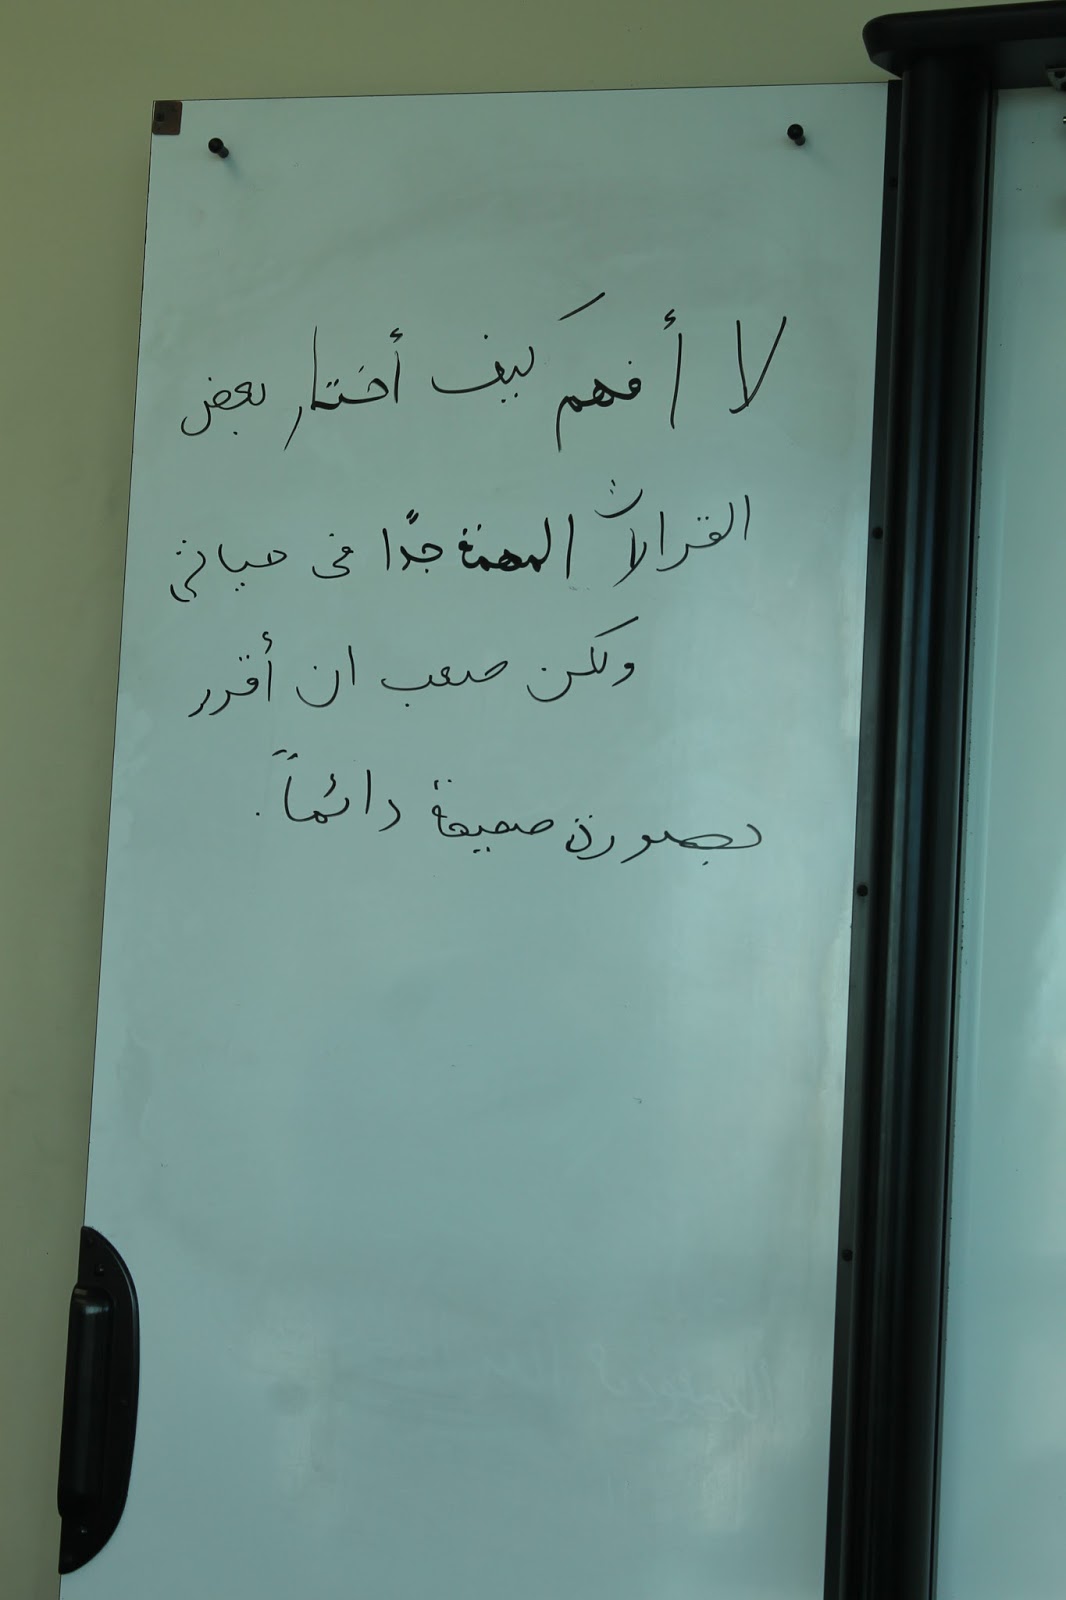 لا أفهم كيف أختار بعض
القرالات المهمة جدًا فى حياتي
ولكن صعب ان أقرر
بصورة صحيحة دائماً.